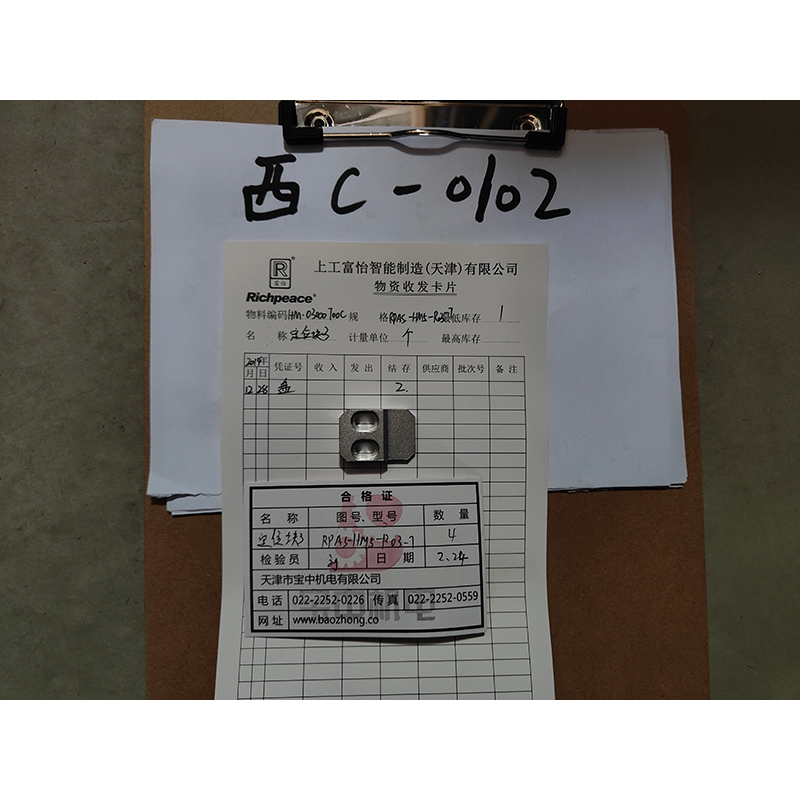 西C-0102
R®
富怡
Richpeace®
上工富怡智能制造(天津)有限公司
物资收发卡片
物料编码HM-03400700C 规 格RPAS-HM5-R03-7最低库存 1
名 称 定位块3 计量单位 个 最高库存
2019年 凭证号 收入 发出 结存 供应商 批次号 备注
月 日
12 28 盘 2
合格证
名称 图号、型号 数量
定位块3 RPAS-HM5-R03-7 4
检验员 日期 2.24
天津市宝中机电有限公司
电话 022-2252-0226 传真 022-2252-0559
网址 www.baozhong.co